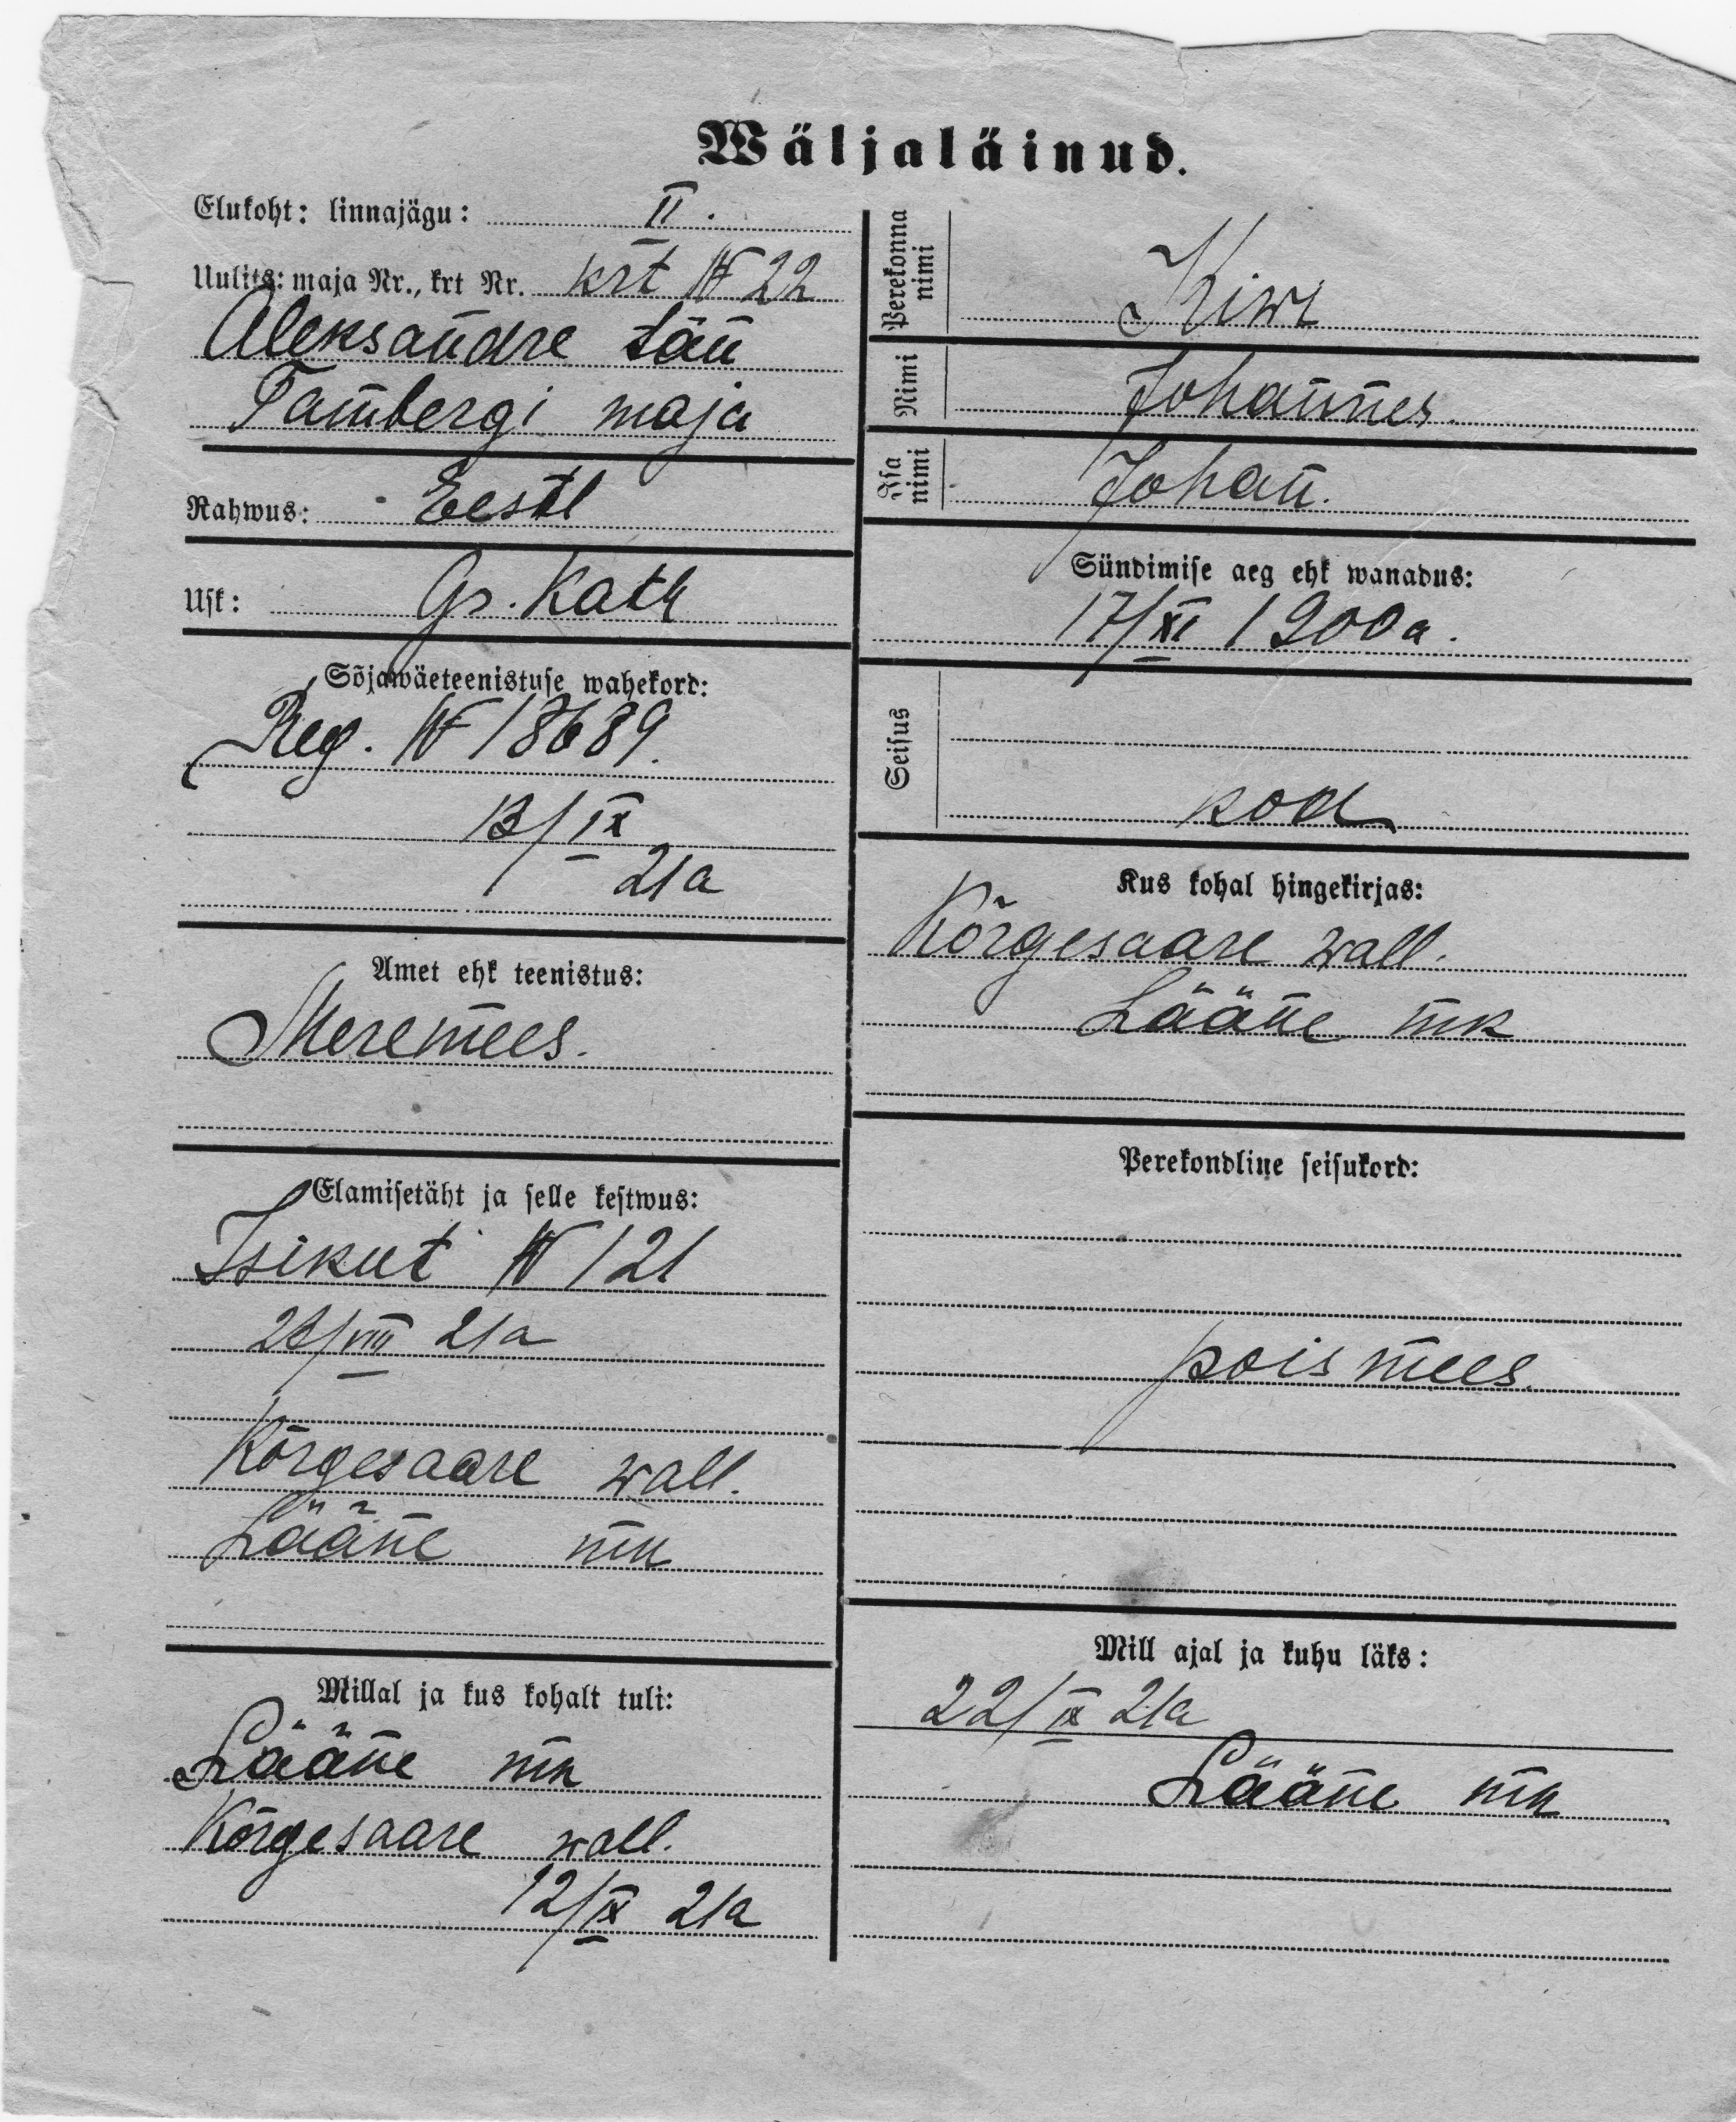 Wäljaläinud.
Elukoht: linnajägu: II.
Uulits: maja Nr., krt Nr. krt № 22
Aleksandre tän
Tambergi maja
Rahwus: Eesti
Usk: Gr. Kath
Sõjawäeteenistuse wahekord:
Reg. № 18689.
13/IX
21a
Amet ehk teenistus:
Meremees.
Elamisetäht ja selle kestwus:
Isikut № 121
/VIII 21a
Kõrgesaare wall.
Lääne mk
Millal ja kus kohalt tuli:
Lääne mk
Kõrgesaare wall.
12/IX 21a
Perekonna nimi Kiwi
Nimi Johannes.
Isa nimi Johan.
Sündimise aeg ehk wanadus:
17/XI 1900a.
Seisus
kod
Kus kohal hingekirjas:
Kõrgesaare wall.
Lääne mk
Perekondline seisukord:
poismees.
Mill ajal ja kuhu läks:
22/IX 21a
Lääne mk